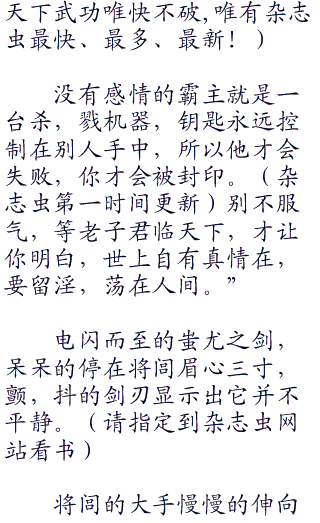 天下武功唯快不破,唯有杂志
虫最快、最多、最新！）
没有感情的霸主就是一
台杀，戮机器，钥匙永远控
制在别人手中，所以他才会
失败，你才会被封印。（杂
志虫第一时间更新）别不服
气，等老子君临天下，才让
你明白，世上自有真情在，
要留淫，荡在人间。”
电闪而至的蚩尤之剑，
呆呆的停在将闾眉心三寸，
颤，抖的剑刃显示出它并不
平静。（请指定到杂志虫网
站看书）
将闾的大手慢慢的伸向